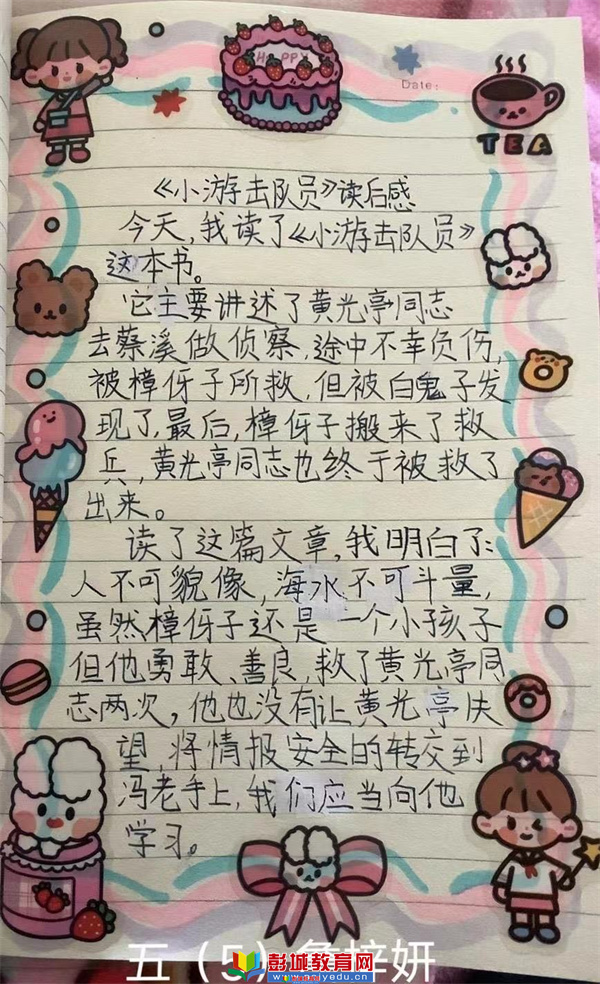 HAPPY
Date:
TEA
《小游击队员》读后感
今天,我读了《小游击队员》
这本书。
它主要讲述了黄光亭同志
去蔡溪做侦察,途中不幸负伤,
被樟伢子所救,但被白鬼子发
现了,最后,樟伢子搬来了救
兵,黄光亭同志也终于被救了
出来。
读了这篇文章,我明白了:
人不可貌像,海水不可斗量,
虽然樟伢子还是一个小孩子
但他勇敢、善良,救了黄光亭同
志两次,他也没有让黄光亭失
望,将情报安全的转交到
冯老手上,我们应当向他
学习。
五(5) 梓妍
彭城教育网